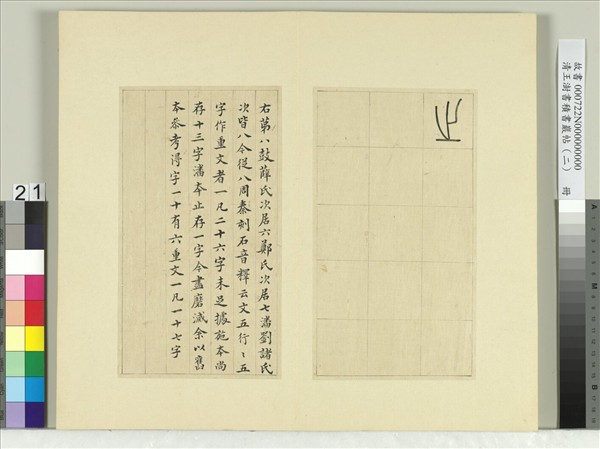 故書 000722N000000000
清王澍書積書巖帖(二) 冊
止
右第八鼓薛氏次居六鄭氏次居七潘劉諸氏
次皆八今從八周秦刻石音釋云文五行〻五
字作重文者一凡二十六字未足據施本尚
存十三字潘本止存一字今盡磨滅余以舊
本叅考得字一十有六重文一凡一十七字
21